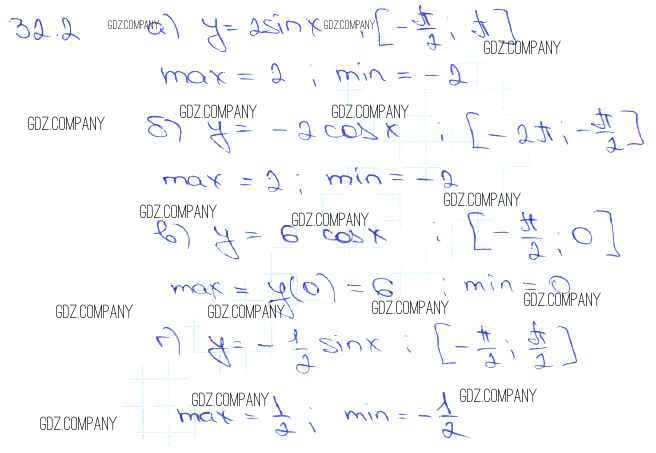 32.2 GDZ.COMPANY а) y = 2sinx GDZ.COMPANY ; [-π/2; π]
GDZ.COMPANY
max = 2 ; min = -2
GDZ.COMPANY GDZ.COMPANY GDZ.COMPANY
б) y = -2cosx ; [-2π; -π/2]
max = 2 ; min = -2
GDZ.COMPANY GDZ.COMPANY GDZ.COMPANY
в) y = 6 cosx ; [-π/2; 0]
max = y(0) = 6 ; min = 0
GDZ.COMPANY GDZ.COMPANY GDZ.COMPANY GDZ.COMPANY
г) y = -1/2 sinx ; [-π/2; π/2]
GDZ.COMPANY GDZ.COMPANY
max = 1/2 ; min = -1/2
GDZ.COMPANY